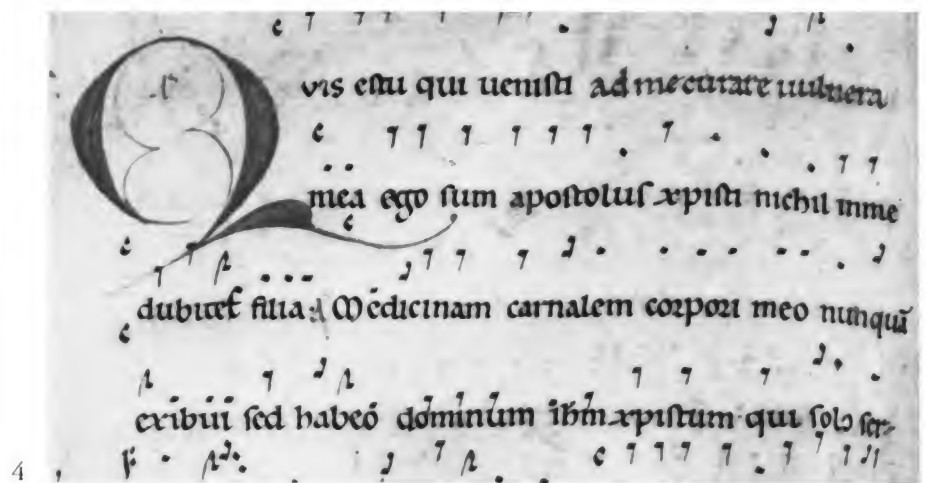 Quis es tu qui uenisti ad me curare uulnera
mea ego sum apostolus xpisti nichil in me
dubites filia: Medicinam carnalem corpori meo nunquā
exibui sed habeo dominum ihm xpistum qui solo ser-
4